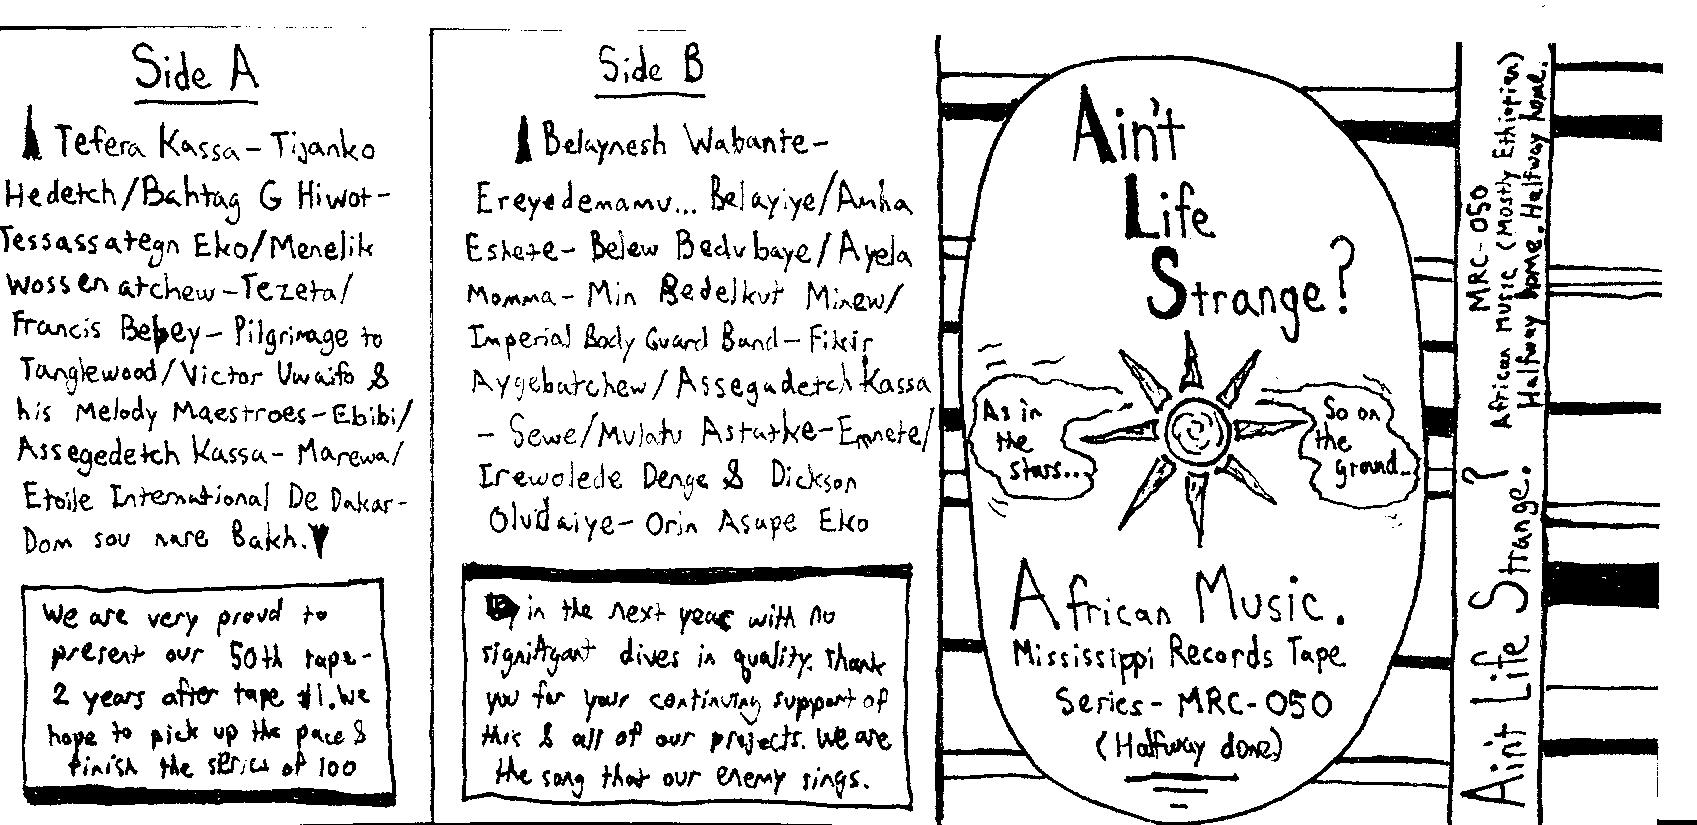 Side A
Tefera Kassa - Tijanko
Hedetch/Bahtag G Hiwot -
Tessassategn Eko/Menelik
Wossenatchew - Tezeta/
Francis Bebey - Pilgrimage to
Tanglewood/Victor Uwaifo &
his Melody Maestroes - Ebibi/
Assegedetch Kassa - Marewa/
Etoile International De Dakar -
Dom sou nare Bakh.
We are very proud to
present our 50th tape -
2 years after tape #1. We
hope to pick up the pace &
finish the series of 100
Side B
Belaynesh Wabante -
Ereyedemamu... Belayiye/Anha
Eshete - Belew Bedubaye/Ayela
Momma - Min Bedelkut Minew/
Imperial Body Guard Band - Fikir
Aygebatchew/Assegadetch Kassa
- Sewe/Mulatu Astatke - Emnete/
Irewolede Denge & Dickson
Oludaiye - Orin Asape Eko
in the next year with no
signifigant dives in quality. Thank
you for your continuing support of
this & all of our projects. We are
the song that our enemy sings.
Ain't
Life
Strange?
As in
the
stars...
So on
the
ground...
African Music.
Mississippi Records Tape
Series - MRC-050
(Halfway done)
Ain't Life Strange?
MRC-050
African Music (Mostly Ethiopian)
Halfway home. Halfway home.